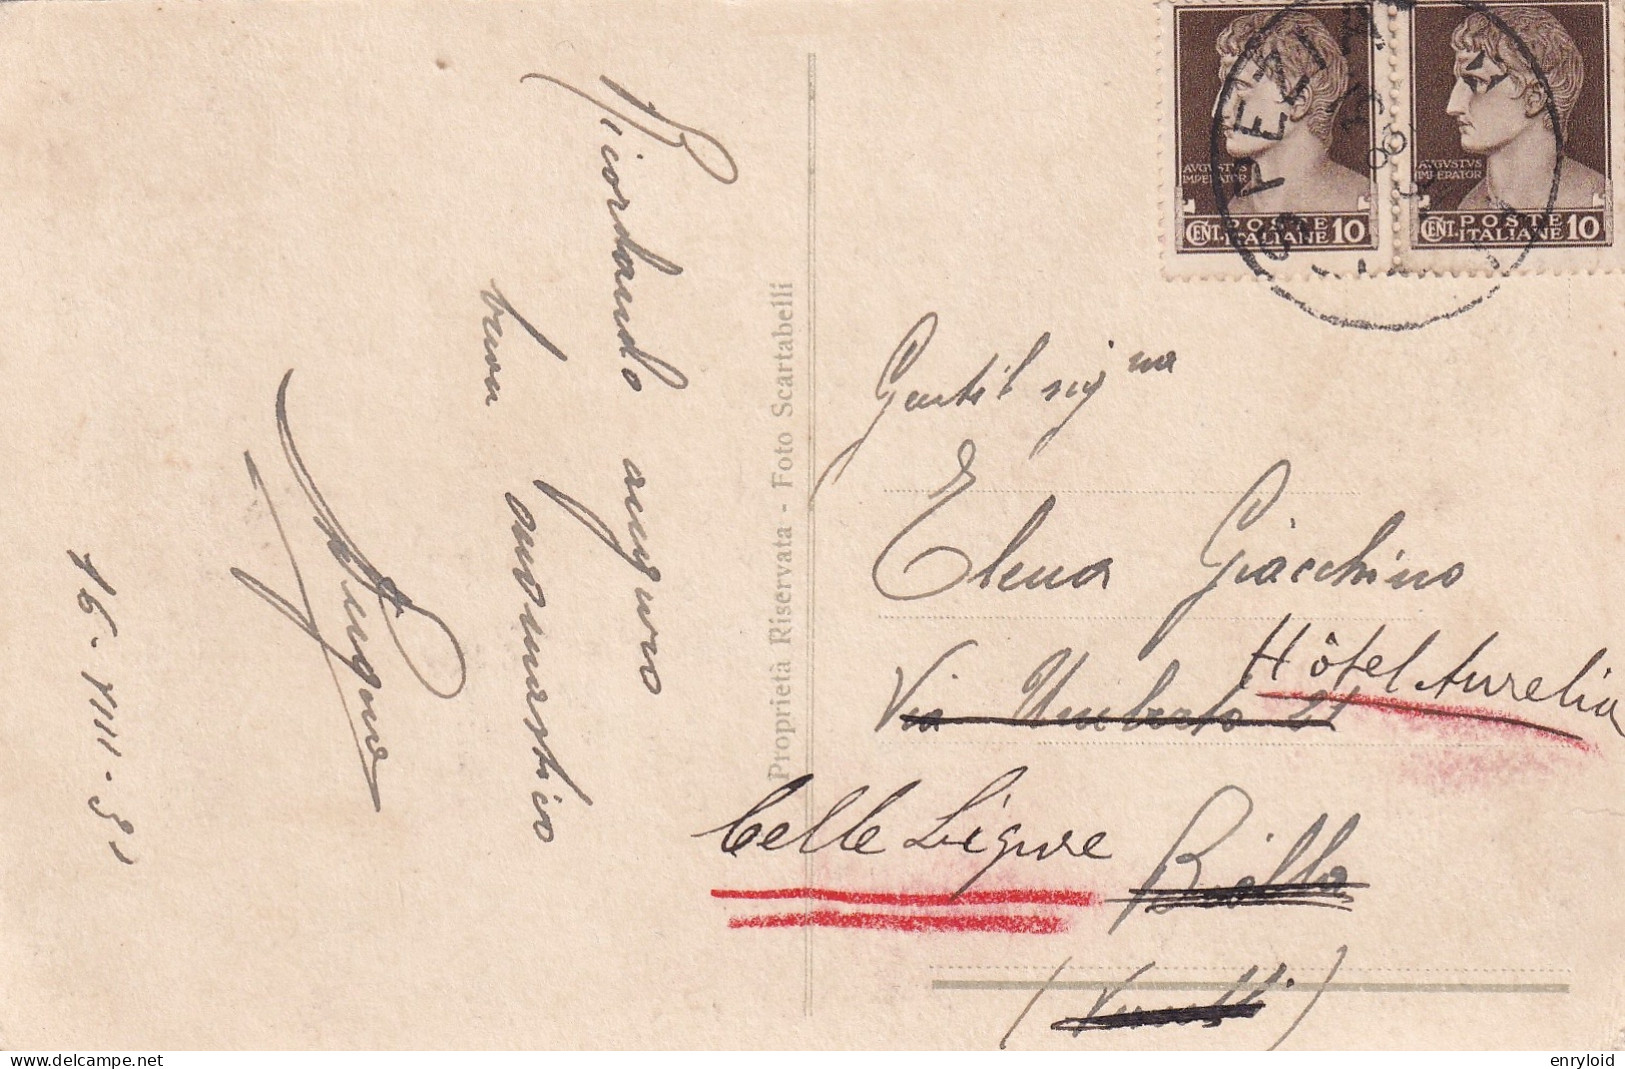 Ricordando auguro
buon onomastico
16-VIII-31
Proprietà Riservata - Foto Scartabelli
AVGVSTVS
IMPERATOR
CENT. POSTE
ITALIANE 10
AVGVSTVS
IMPERATOR
CENT. POSTE
ITALIANE 10
SPEZIA
Gentil sigma
Elena Giacchino
Via Umberto 21
Hôtel Aurelia
Celle Ligure
Biella
(Vercelli)
delcampe.net
enryloid